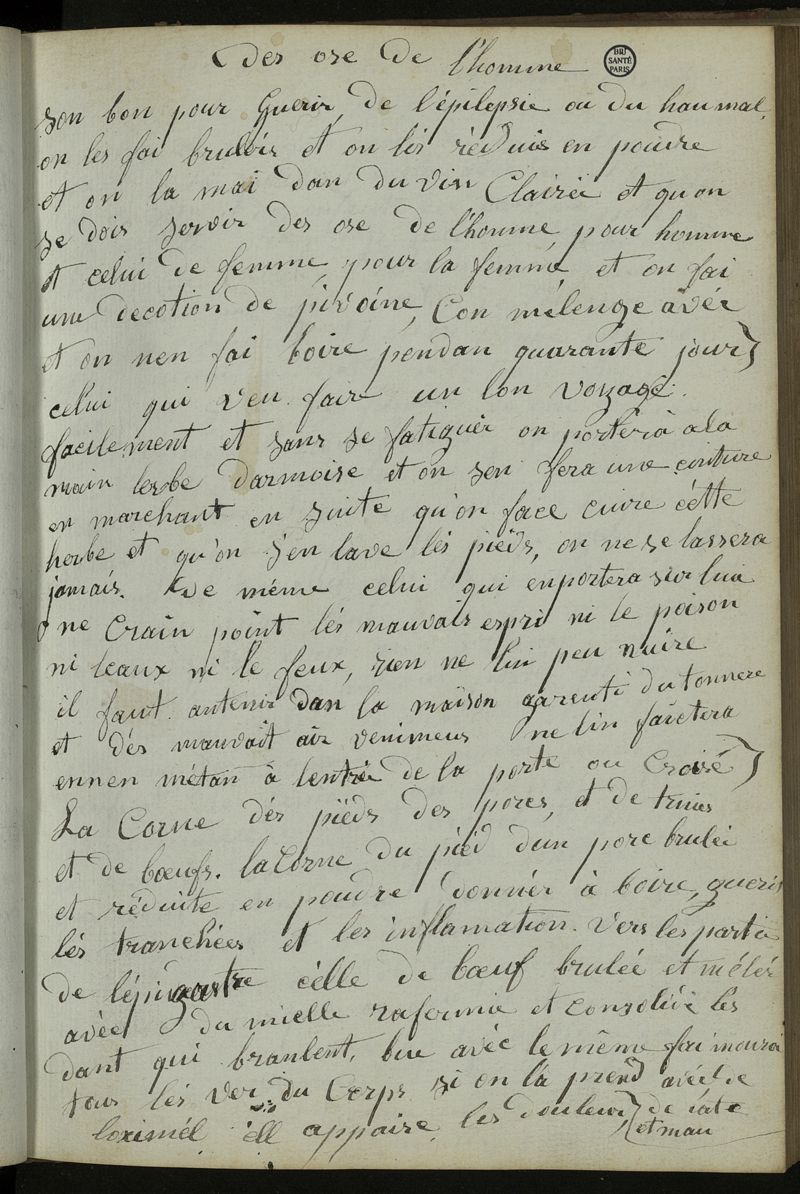 Des ose de l'homme
BIU
SANTÉ
PARIS
son bon pour Guerir de l'épilepsie ou du hau mal,
on les fai brulois et on lis réduis en poudre
et on la mai dan du vin Clairée et qu'on
se dois servoir des ose de l'houme pour homme
et celui de femme pour la femme, et on fai
une decotion de pivoine, Con mélenge avée
et on nen fai boire pendan quarante jour)
celui qui veu fair un lon voyage.
facilement et sans se fatiguér on portèra a la
main lerbe darmoise et on sen fera une cinture
en marchant en suite qu'on face cuire cétte
herbe et qu'on s'en lave lés pieds, on ne se lassera
jamais. De même celui qui en portera sur lui
ne Crain point lés mauvais espri ni le poison
ni leaux ni le feux, rien ne lui peu nuire
il faut antenir dan la maison garenti du tonnere
et dés mauvait air venimeus ne lin faictera
ennen métan à lentrée de la porte ou Croisé)
La Corne dés piëds des porcs, et de truies
et de bœufs. la Corne du pied dun porc brulée
et réduite en poudre donnér à boire, gueris
lés tranchées et les inflamation. Vers les partie
de lépigastre célle de bœuf brulée et mélée
avéc du mielle rafermie et consolide lés
dant qui branlent, bue avéc le même fai mourir
tous lés ver du Corps si on la prend avéc de
loximél éll appaise les douleur) de rate
et mau